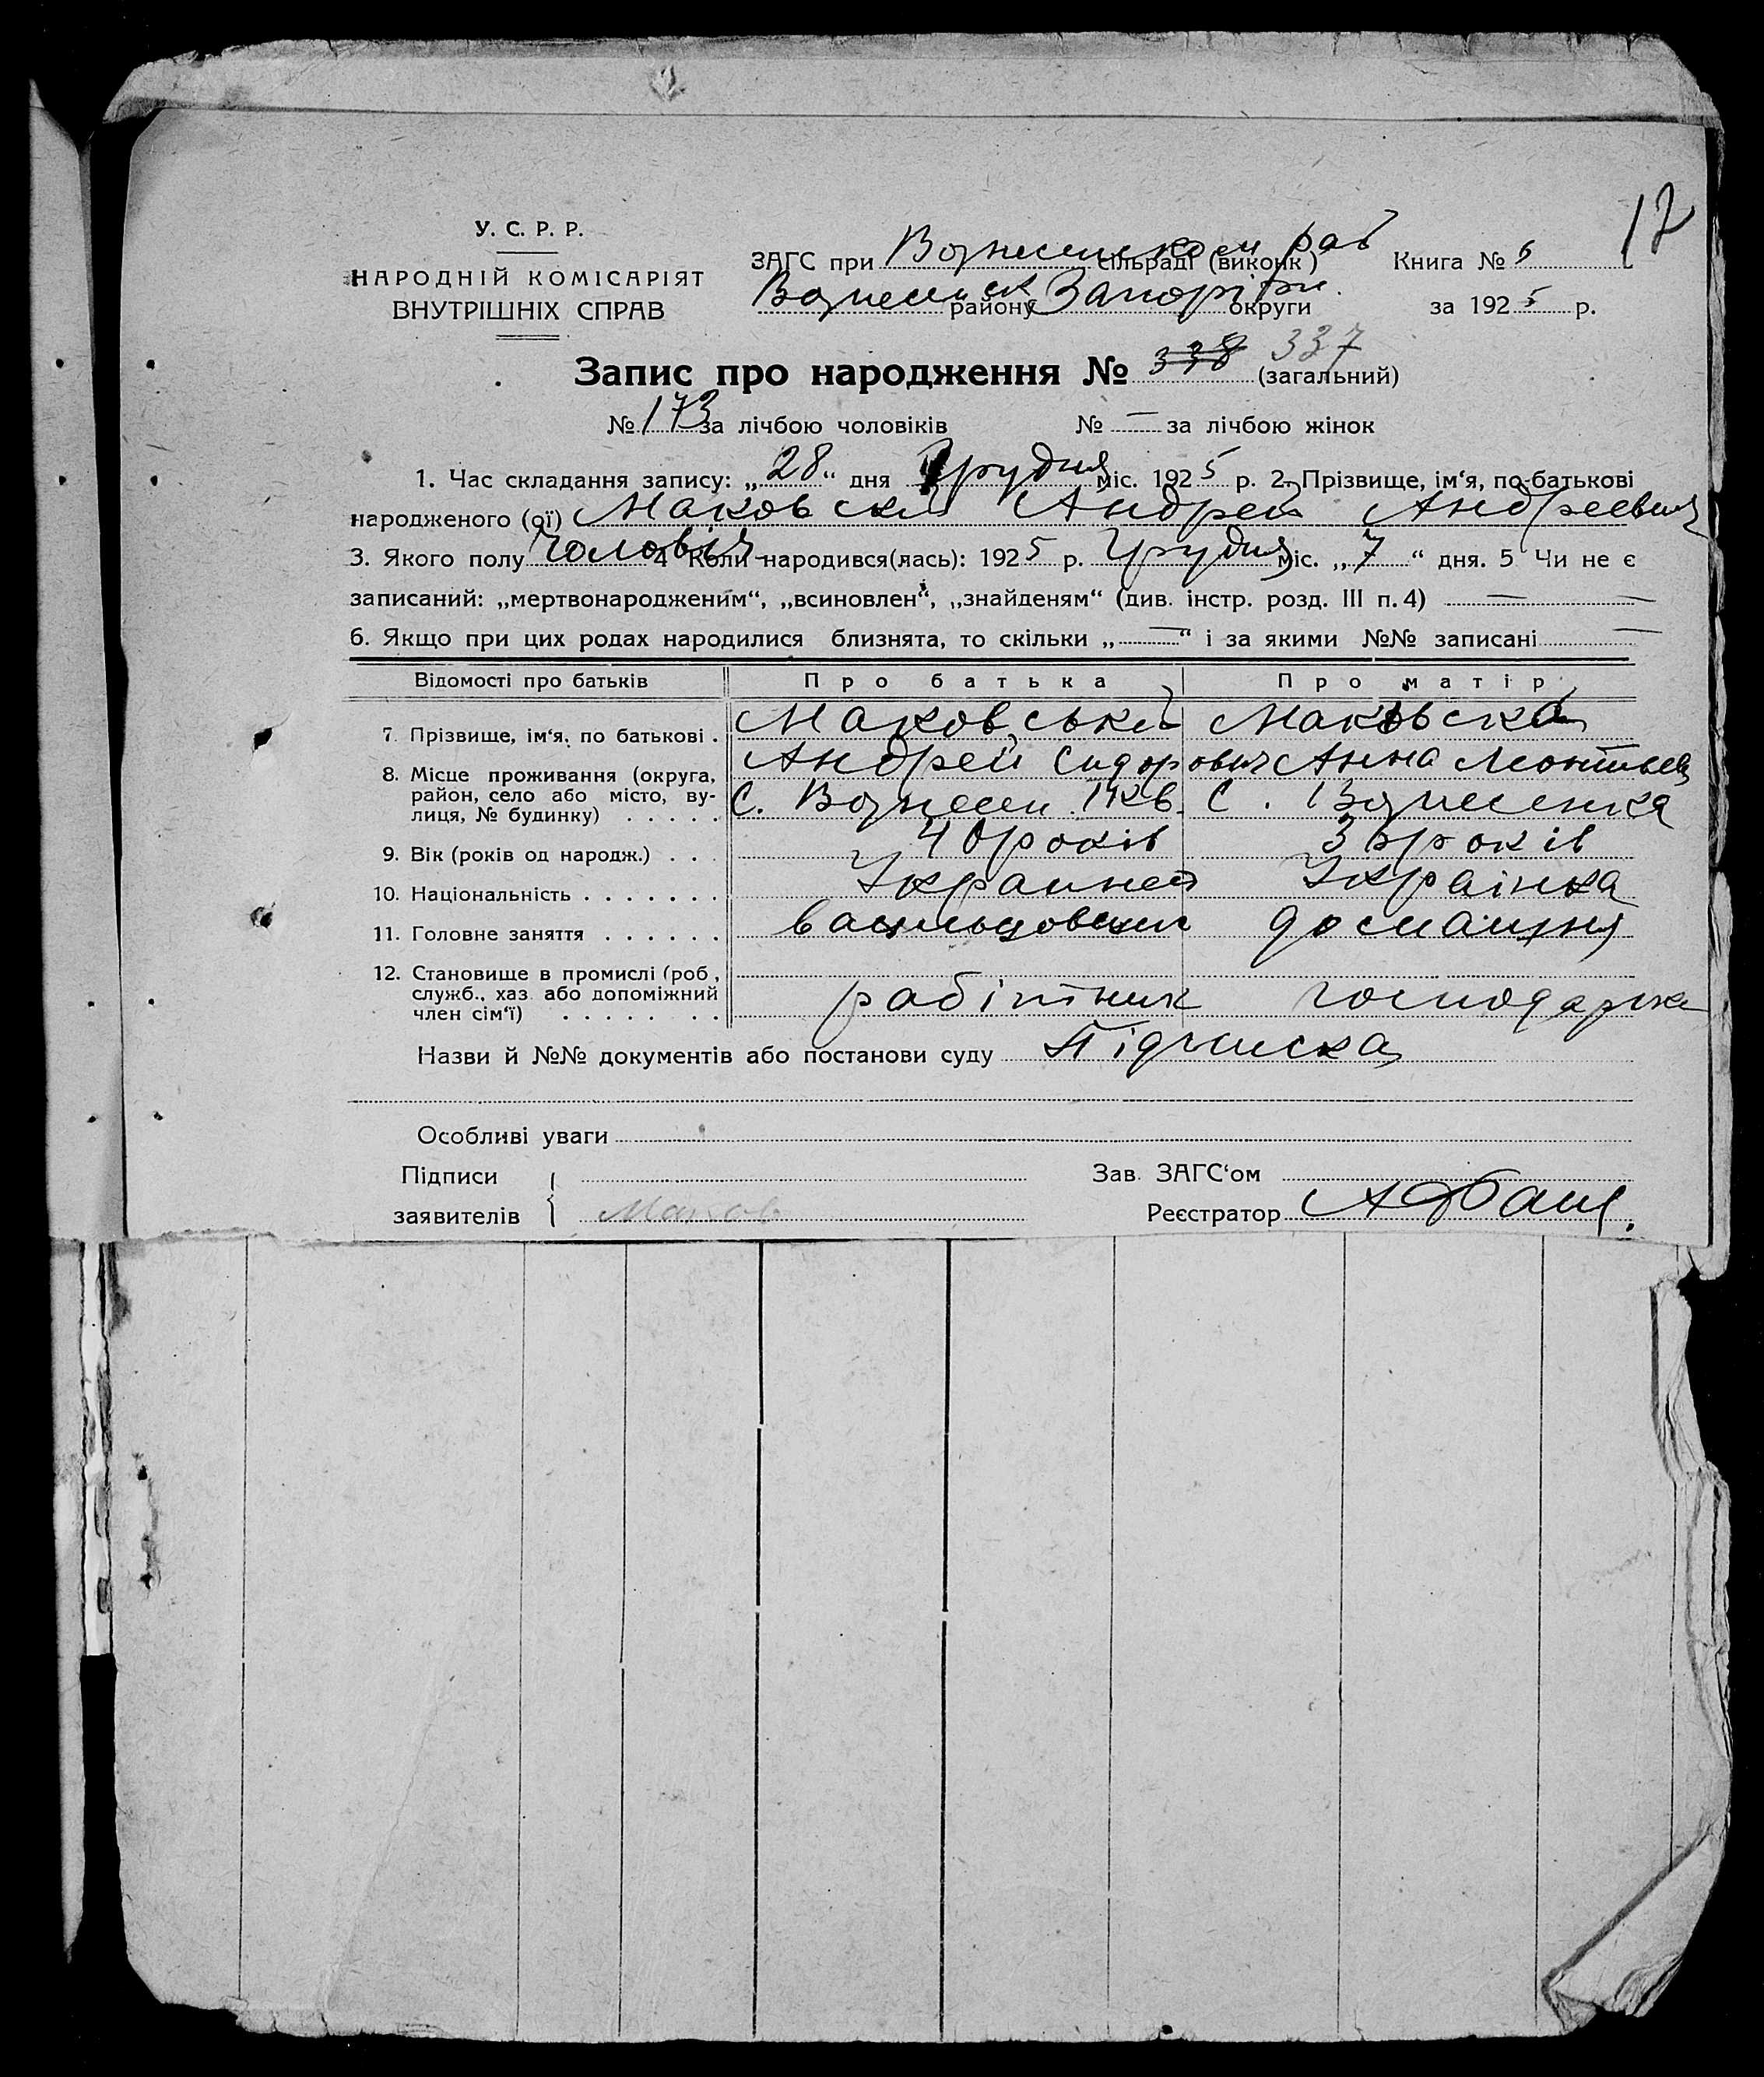 12
У. С. Р. Р.
НАРОДНІЙ КОМІСАРІЯТ
ВНУТРІШНІХ СПРАВ
ЗАГС при сільраді (виконк) Книга № 6
району Запоріж. округи за 1925 р.
Запис про народження № 338 337 (загальний)
№ 173 за лічбою чоловіків № — за лічбою жінок
1. Час складання запису: „28“ дня Грудня міс. 1925 р. 2. Прізвище, ім‘я, по-батькові
народженого (ої) Маковский Андрей Андреевич
3. Якого полу Чоловіч 4 Коли народився(лась): 1925 р. Грудня міс. „7“ дня. 5 Чи не є
записаний: „мертвонародженим“, „всиновлен“, „знайденям“ (див. інстр. розд. III п. 4) — —
6. Якщо при цих родах народилися близнята, то скільки „—“ і за якими №№ записані —
Відомості про батьків Про батька Про матір
7. Прізвище, ім‘я, по батькові . Маковський Маковська
Андрей Сидорович Анна Леонтьев
8. Місце проживання (округа, район, село або місто, вулиця, № будинку) . . . . . С. Вознесен. кв. С. Вознесенка
9. Вік (років од народж.) . . . 40 років 35 років
10. Національність . . . . . . . Украинец Українка
11. Головне заняття . . . . . . домашня
12. Становище в промислі (роб., служб., хаз. або допоміжний член сім‘ї) . . . . . . . рабітник господарка
Назви й №№ документів або постанови суду Підписка
Особливі уваги
Підписи
заявителів Маков
Зав. ЗАГС‘ом
Реєстратор